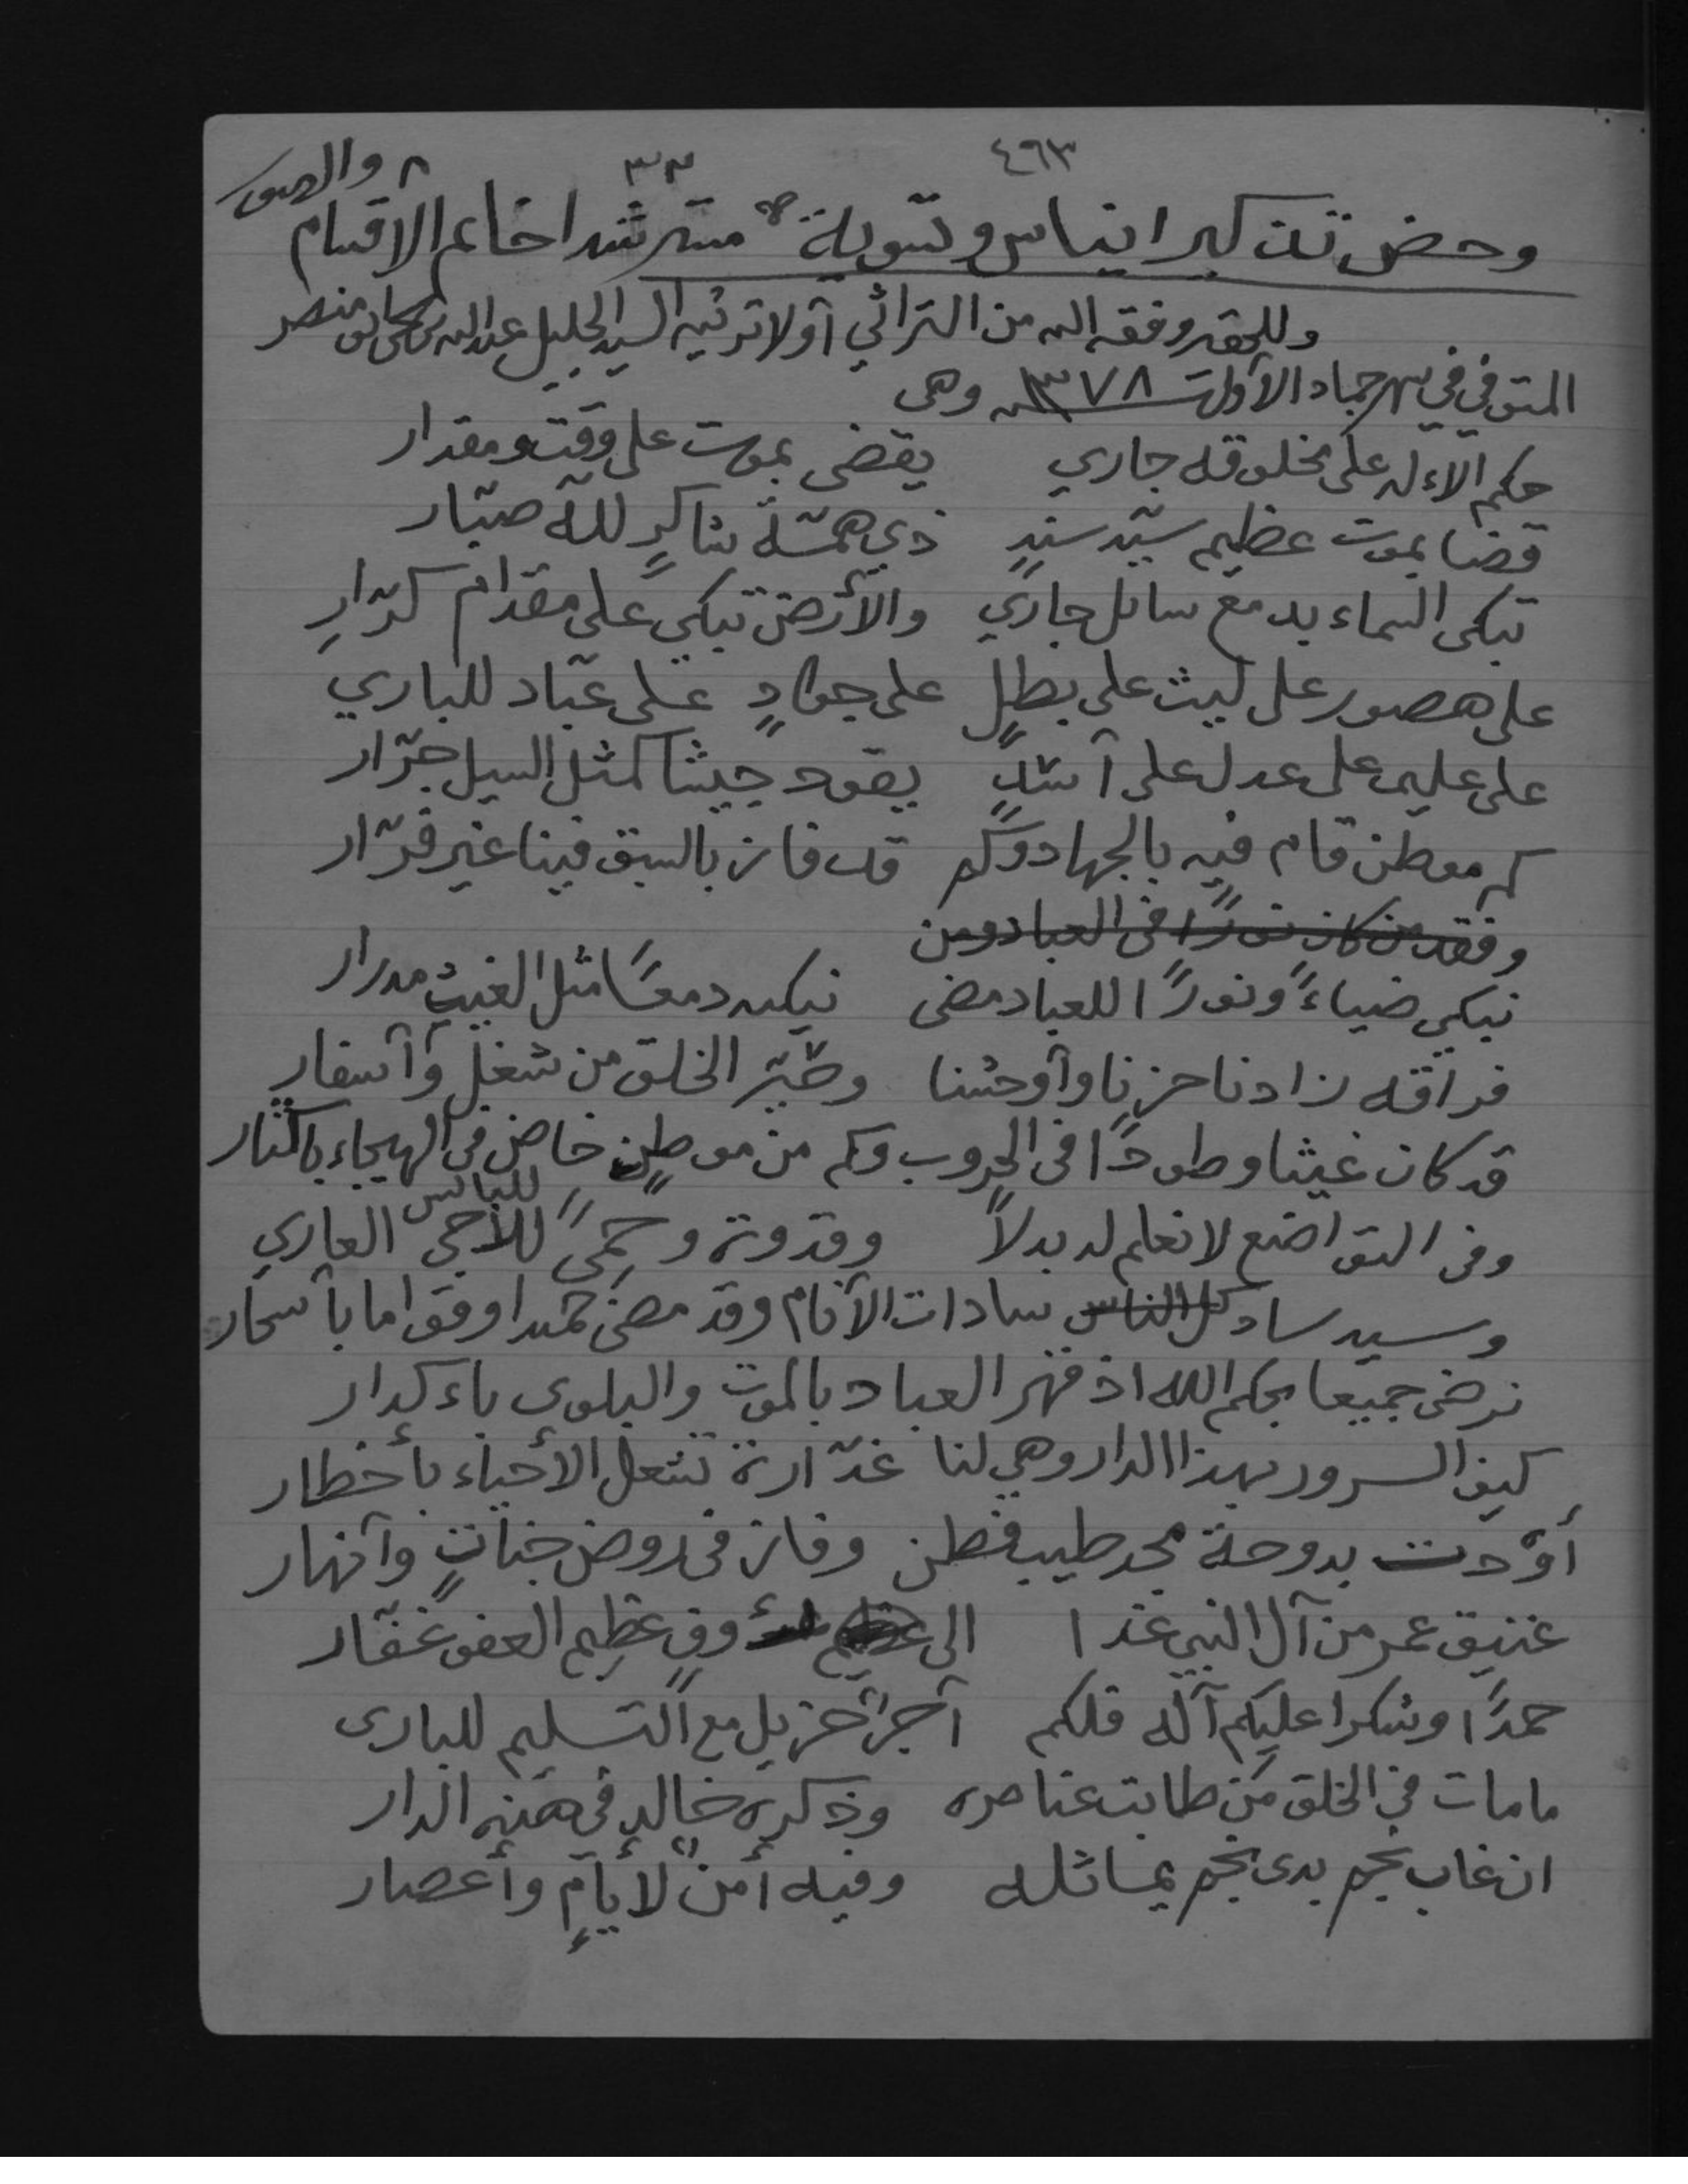 ٤٦٣
٣٣
وحض تذكير ايناس وتسوية مسترشدا خاتم الاقسام
وللحقير وفقه الله من التراثي أولا ترثيه السيد الجليل عبدالله بن يحي منصر
المتوفي في شهر جماد الأولى سنة ١٣٧٨ وهي
حكم الاله على مخلوقه جاري يقضى بموت على وقت ومقدار
قضا بموت عظيم سيّد سندٍ ذي همّة شاكرٍ لله صبّار
تبكى السماء بدمع سائل جاري والأرض تبكي على مقدام كرّارِ
على هصور على ليث على بطلٍ على جوادٍ على عبّاد للباري
على عليم على عدل على أسدٍ يقود جيشا كمثل السيل جرّار
كم موطن قام فيه بالجهاد وكم قد فاز بالسبق فينا غير فرّار
وفقد من كان نورًا في العباد ومن
نبكي ضياءً ونورًا للعباد مضى نبكيه دمعًا مثل الغيث مدرار
فراقه زادنا حزنا وأوحشنا وحيّر الخلق من شغل وأسفار
قد كان غيثا وطودًا في الحروب وكم من موطنٍ خاض في الهيجاء باكثار
وفى التواضع لا نعلم له بدلاً وقدوة وحمىً للأجى للبائس العاري
وسيد ساد كل الناس سادات الأنام وقد مضى حميدا وقواما بأسحار
نرضى جميعا بحكم الله اذ قهر العباد بالموت والبلوى باءكدار
كيف السرور بهذا الدار وهي لنا غدّارة تشعل الأحياء بأخطار
أوْدت بدوحة مجد طيب فطن وفاز في روض جناتٍ وأنهار
غنيق عمر من آل النبي غدا الى عظيم رؤوفٍ عظيم العفو غفّار
حمدًا وشكرا عليكم آله فلكم أجرٌ جزيل مع التسليم للبارى
مامات في الخلق من طابت عناصره وذكره خالد في هذه الدار
ان غاب نجم بدى نجم يماثله وفيه أمنٌ لأيامٍ وأعصار